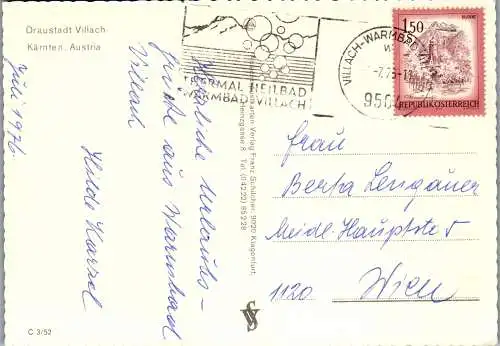 Draustadt Villach
Kärnten, Austria
Juli 1976
Herzliche Urlaubs-
grüße aus Warmbad
Villach
Hilde
THERMAL-HEILBAD
WARMBAD VILLACH
VILLACH-WARMBAD
950
1.50
REPUBLIK ÖSTERREICH
Karten Verlag Franz Schilcher, 9020 Klagenfurt,
8 Tel. (0 42 22) 85 2 28
Frau
Berta Lengauer
Meidl. Hauptstr. 5
1120 Wien
C 3/52